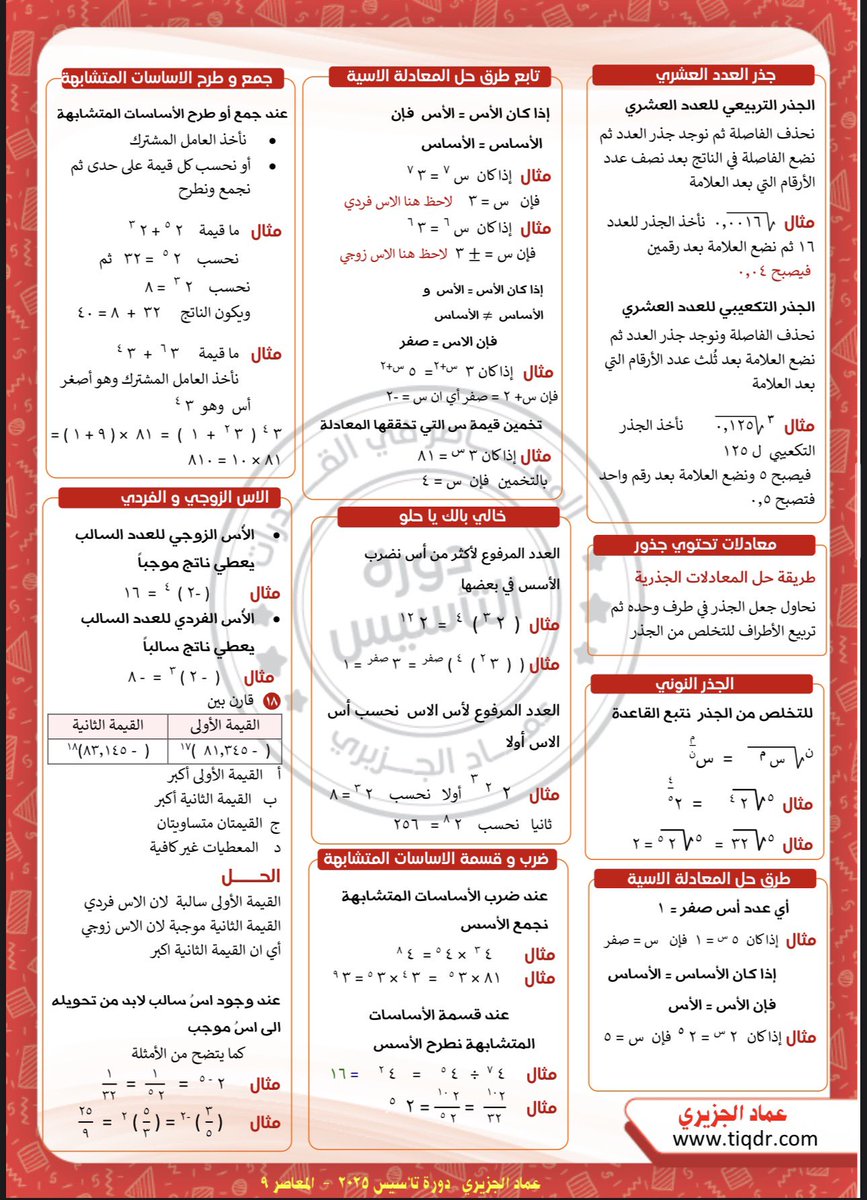 جذر العدد العشري
الجذر التربيعي للعدد العشري
نحذف الفاصلة ثم نوجد جذر العدد ثم
نضع الفاصلة في الناتج بعد نصف عدد
الأرقام التي بعد العلامة
مثال √٠,٠٠١٦ نأخذ الجذر للعدد
١٦ ثم نضع العلامة بعد رقمين
فيصبح ٠,٠٤
الجذر التكعيبي للعدد العشري
نحذف الفاصلة ونوجد جذر العدد ثم
نضع العلامة بعد ثُلث عدد الأرقام التي
بعد العلامة
مثال ∛٠,١٢٥ نأخذ الجذر
التكعيبي ل ١٢٥
فيصبح ٥ ونضع العلامة بعد رقم واحد
فتصبح ٠,٥
معادلات تحتوي جذور
طريقة حل المعادلات الجذرية
نحاول جعل الجذر في طرف وحده ثم
تربيع الأطراف للتخلص من الجذر
الجذر النوني
للتخلص من الجذر نتبع القاعدة
ن√س^م = س^(م/ن)
مثال ٥√٢^٤ = ٢^(٤/٥)
مثال ٥√٣٢ = ٥√٢^٥ = ٢
طرق حل المعادلة الاسية
أي عدد أس صفر = ١
مثال إذا كان ٥^س = ١ فإن س = صفر
إذا كان الأساس = الأساس
فإن الأس = الأس
مثال إذا كان ٢^س = ٢^٥ فإن س = ٥
تابع طرق حل المعادلة الاسية
إذا كان الأس = الأس فإن
الأساس = الأساس
مثال إذا كان س^٧ = ٣^٧
فإن س = ٣ لاحظ هنا الاس فردي
مثال إذا كان س^٦ = ٣^٦
فإن س = ± ٣ لاحظ هنا الاس زوجي
إذا كان الأس = الأس و
الأساس ≠ الأساس
فإن الاس = صفر
مثال إذا كان ٣^(س+٢) = ٥^(س+٢)
فإن س+ ٢ = صفر أي ان س = -٢
تخمين قيمة س التي تحققها المعادلة
مثال إذا كان ٣^س = ٨١
بالتخمين فإن س = ٤
خالي بالك يا حلو
العدد المرفوع لأكثر من أس نضرب
الأسس في بعضها
مثال (٢^٣)^٤ = ٢^١٢
مثال ((٣^٢)^٤)^صفر = ٣^صفر = ١
العدد المرفوع لأس الاس نحسب أس
الاس أولا
مثال ٢^٢^٣ أولا نحسب ٢^٣ = ٨
ثانيا نحسب ٢^٨ = ٢٥٦
ضرب و قسمة الاساسات المتشابهة
عند ضرب الأساسات المتشابهة
نجمع الأسس
مثال ٤^٣ × ٤^٥ = ٤^٨
مثال ٨١ × ٣^٥ = ٣^٤ × ٣^٥ = ٣^٩
عند قسمة الأساسات
المتشابهة نطرح الأسس
مثال ٤^٧ ÷ ٤^٥ = ٤^٢ = ١٦
مثال ٢^١٠/٣٢ = ٢^١٠/٢^٥ = ٢^٥
جمع و طرح الاساسات المتشابهة
عند جمع أو طرح الأساسات المتشابهة
• نأخذ العامل المشترك
• أو نحسب كل قيمة على حدى ثم
نجمع ونطرح
مثال ما قيمة ٢^٥ + ٢^٣
نحسب ٢^٥ = ٣٢ ثم
نحسب ٢^٣ = ٨
ويكون الناتج ٣٢ + ٨ = ٤٠
مثال ما قيمة ٣^٦ + ٣^٤
نأخذ العامل المشترك وهو أصغر
أس وهو ٣^٤
٣^٤ (٣^٢ + ١) = ٨١ × (٩ + ١) =
٨١ × ١٠ = ٨١٠
الاس الزوجي و الفردي
• الأس الزوجي للعدد السالب
يعطي ناتج موجباً
مثال (-٢)^٤ = ١٦
• الأس الفردي للعدد السالب
يعطي ناتج سالباً
مثال (-٢)^٣ = -٨
١٨ قارن بين
القيمة الأولى القيمة الثانية
(-٨١,٣٤٥)^١٧ (-٨٣,١٤٥)^١٨
أ القيمة الأولى أكبر
ب القيمة الثانية أكبر
ج القيمتان متساويتان
د المعطيات غير كافية
الحـــــل
القيمة الأولى سالبة لان الاس فردي
القيمة الثانية موجبة لان الاس زوجي
أي ان القيمة الثانية اكبر
عند وجود اسُ سالب لابد من تحويله
الى اسُ موجب
كما يتضح من الأمثلة
مثال ٢^-٥ = ١/٢^٥ = ١/٣٢
مثال (٣/٥)^-٢ = (٥/٣)^٢ = ٢٥/٩
دورة
التأسيس
عماد الجزيري
عماد الجزيري
www.tiqdr.com
عماد الجزيري دورة تأسيس ٢٠٢٥ - المعاصر ٩